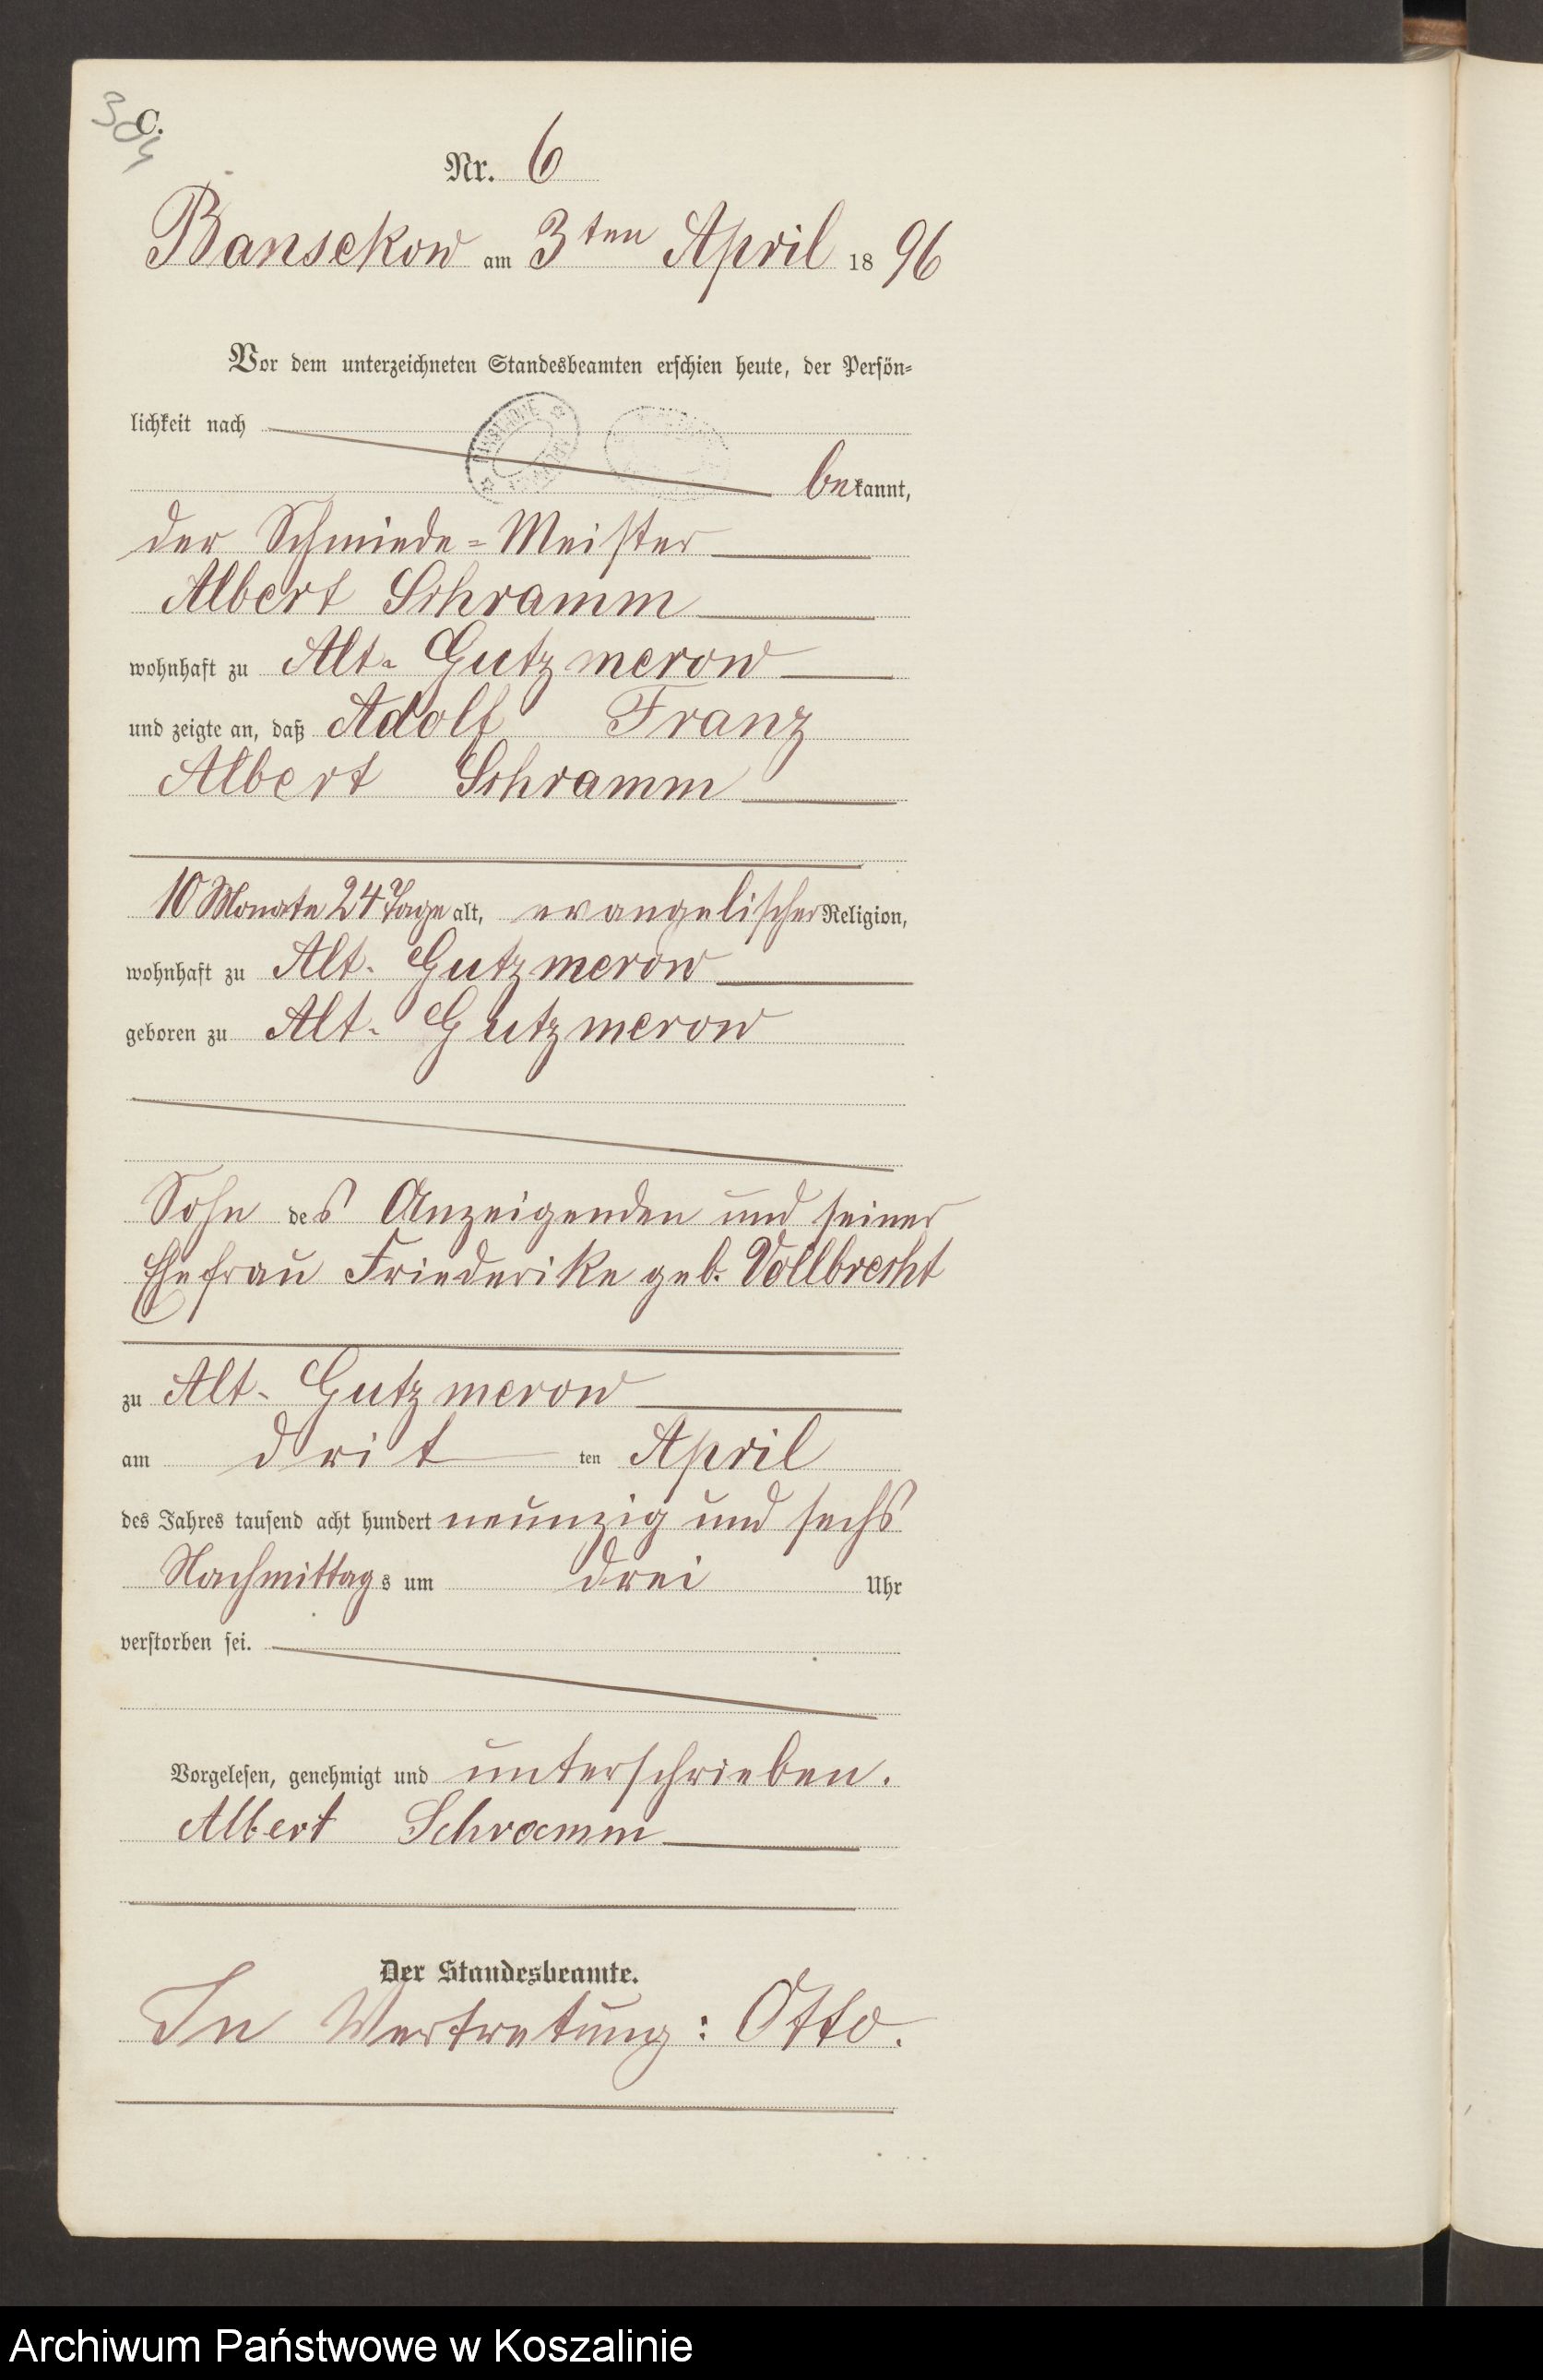 304
C.
Nr. 6
Bansekow am 3ten April 1896
Vor dem unterzeichneten Standesbeamten erschien heute, der Persön-
lichkeit nach
bekannt,
der Schmiede-Meister
Albert Schramm
wohnhaft zu Alt-Gutzmerow
und zeigte an, daß Adolf Franz
Albert Schramm
10 Monate 24 Tage alt, evangelischer Religion,
wohnhaft zu Alt-Gutzmerow
geboren zu Alt-Gutzmerow
Sohn des Anzeigenden und seiner
Ehefrau Friederike geb. Vollbrecht
zu Alt-Gutzmerow
am drit ten April
des Jahres tausend acht hundert neunzig und sechs
Nachmittags um drei Uhr
verstorben sei.
Vorgelesen, genehmigt und unterschrieben.
Albert Schramm
Der Standesbeamte.
In Vertretung: Otto.
Archiwum Państwowe w Koszalinie